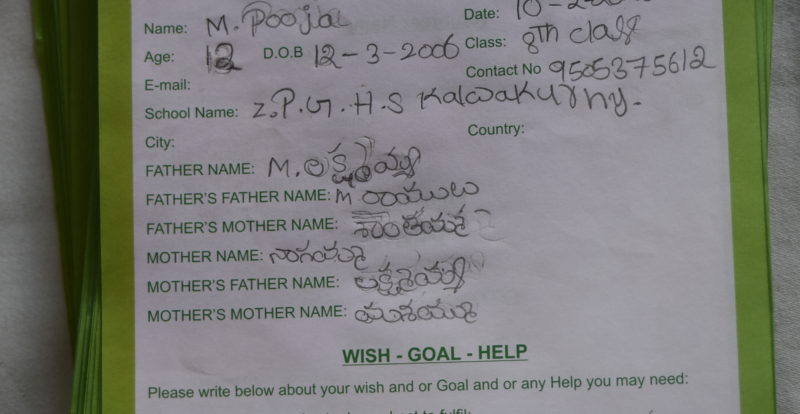 Name: M. Pooja Date: 10-
Age: 12 D.O.B 12-3-2006 Class: 8th class
E-mail: Contact No 9505375612
School Name: Z.P.G.H.S Kalwakurthy.
City: Country:
FATHER NAME: M.
FATHER'S FATHER NAME: M రాములు
FATHER'S MOTHER NAME:
MOTHER NAME: నాగమ్మ
MOTHER'S FATHER NAME:
MOTHER'S MOTHER NAME:
WISH - GOAL - HELP
Please write below about your wish and or Goal and or any Help you may need: